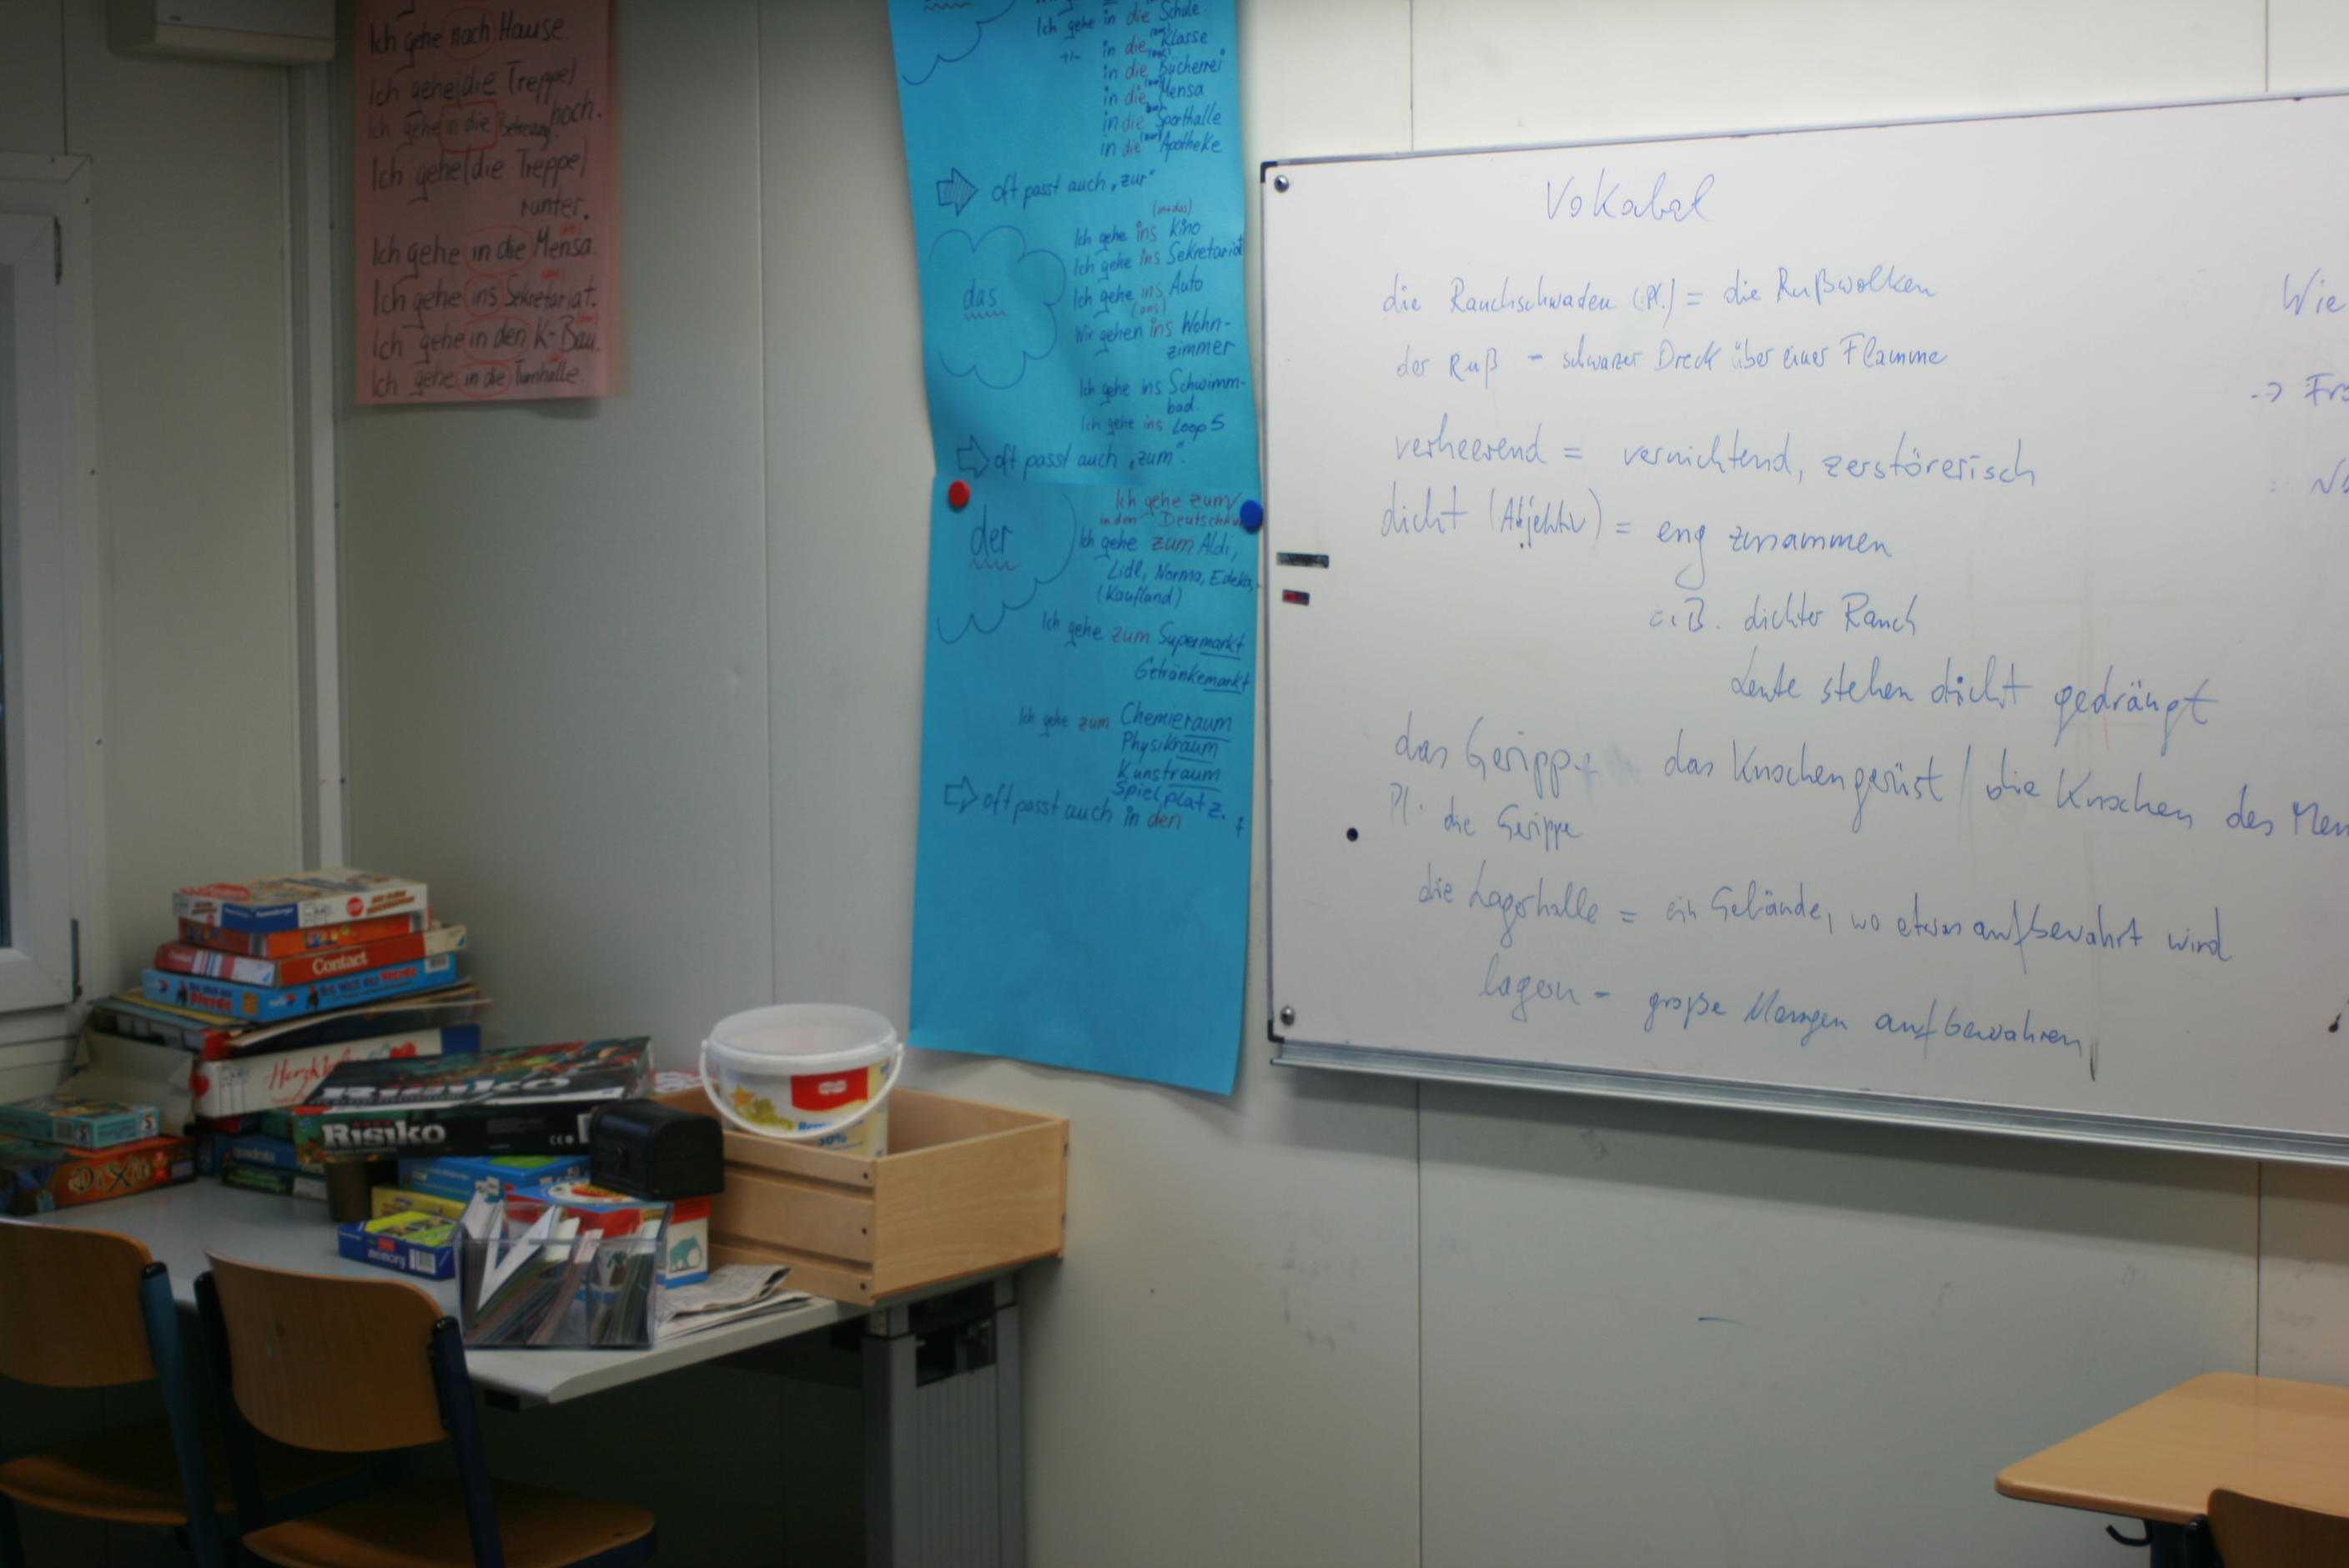 Ich gehe nach Hause.
Ich gehe (die Treppe)
hoch.
Ich gehe in die
Ich gehe (die Treppe)
runter.
Ich gehe in die Mensa.
Ich gehe ins Sekretariat.
Ich gehe in den K-Bau.
Ich gehe in die Turnhalle.
Ich gehe in die Schule
in die Klasse
in die Bücherei
in die Mensa
in die Sporthalle
in die Apotheke
oft passt auch „zur“
(in+das)
das
Ich gehe ins Kino
Ich gehe ins Sekretariat
Ich gehe ins Auto
Wir gehen ins Wohn-
zimmer
Ich gehe ins Schwimm-
bad.
Ich gehe ins Loop5
oft passt auch „zum“.
der
Ich gehe zum/
in den
Ich gehe zum Aldi,
Lidl, Norma, Edeka,
(Kaufland)
Ich gehe zum Supermarkt
Getränkemarkt
Ich gehe zum Chemieraum
Physikraum
Kunstraum
Spielplatz.
oft passt auch in den
Vokabel
die Rauchschwaden (Pl.) = die Rußwolken
der Ruß - schwarzer Dreck über einer Flamme
verheerend = vernichtend, zerstörerisch
dicht (Adjektiv) = eng zusammen
z.B. dichter Rauch
Leute stehen dicht gedrängt
das Gerippe das Knochengerüst / die Knochen des Men
Pl. die Gerippe
die Lagerhalle = ein Gebäude, wo etwas aufbewahrt wird
lagern - große Mengen aufbewahren
Wie
-> Fra
Contact
Pferde
Risiko
Risiko
Dixit
quadrata
memory
30%